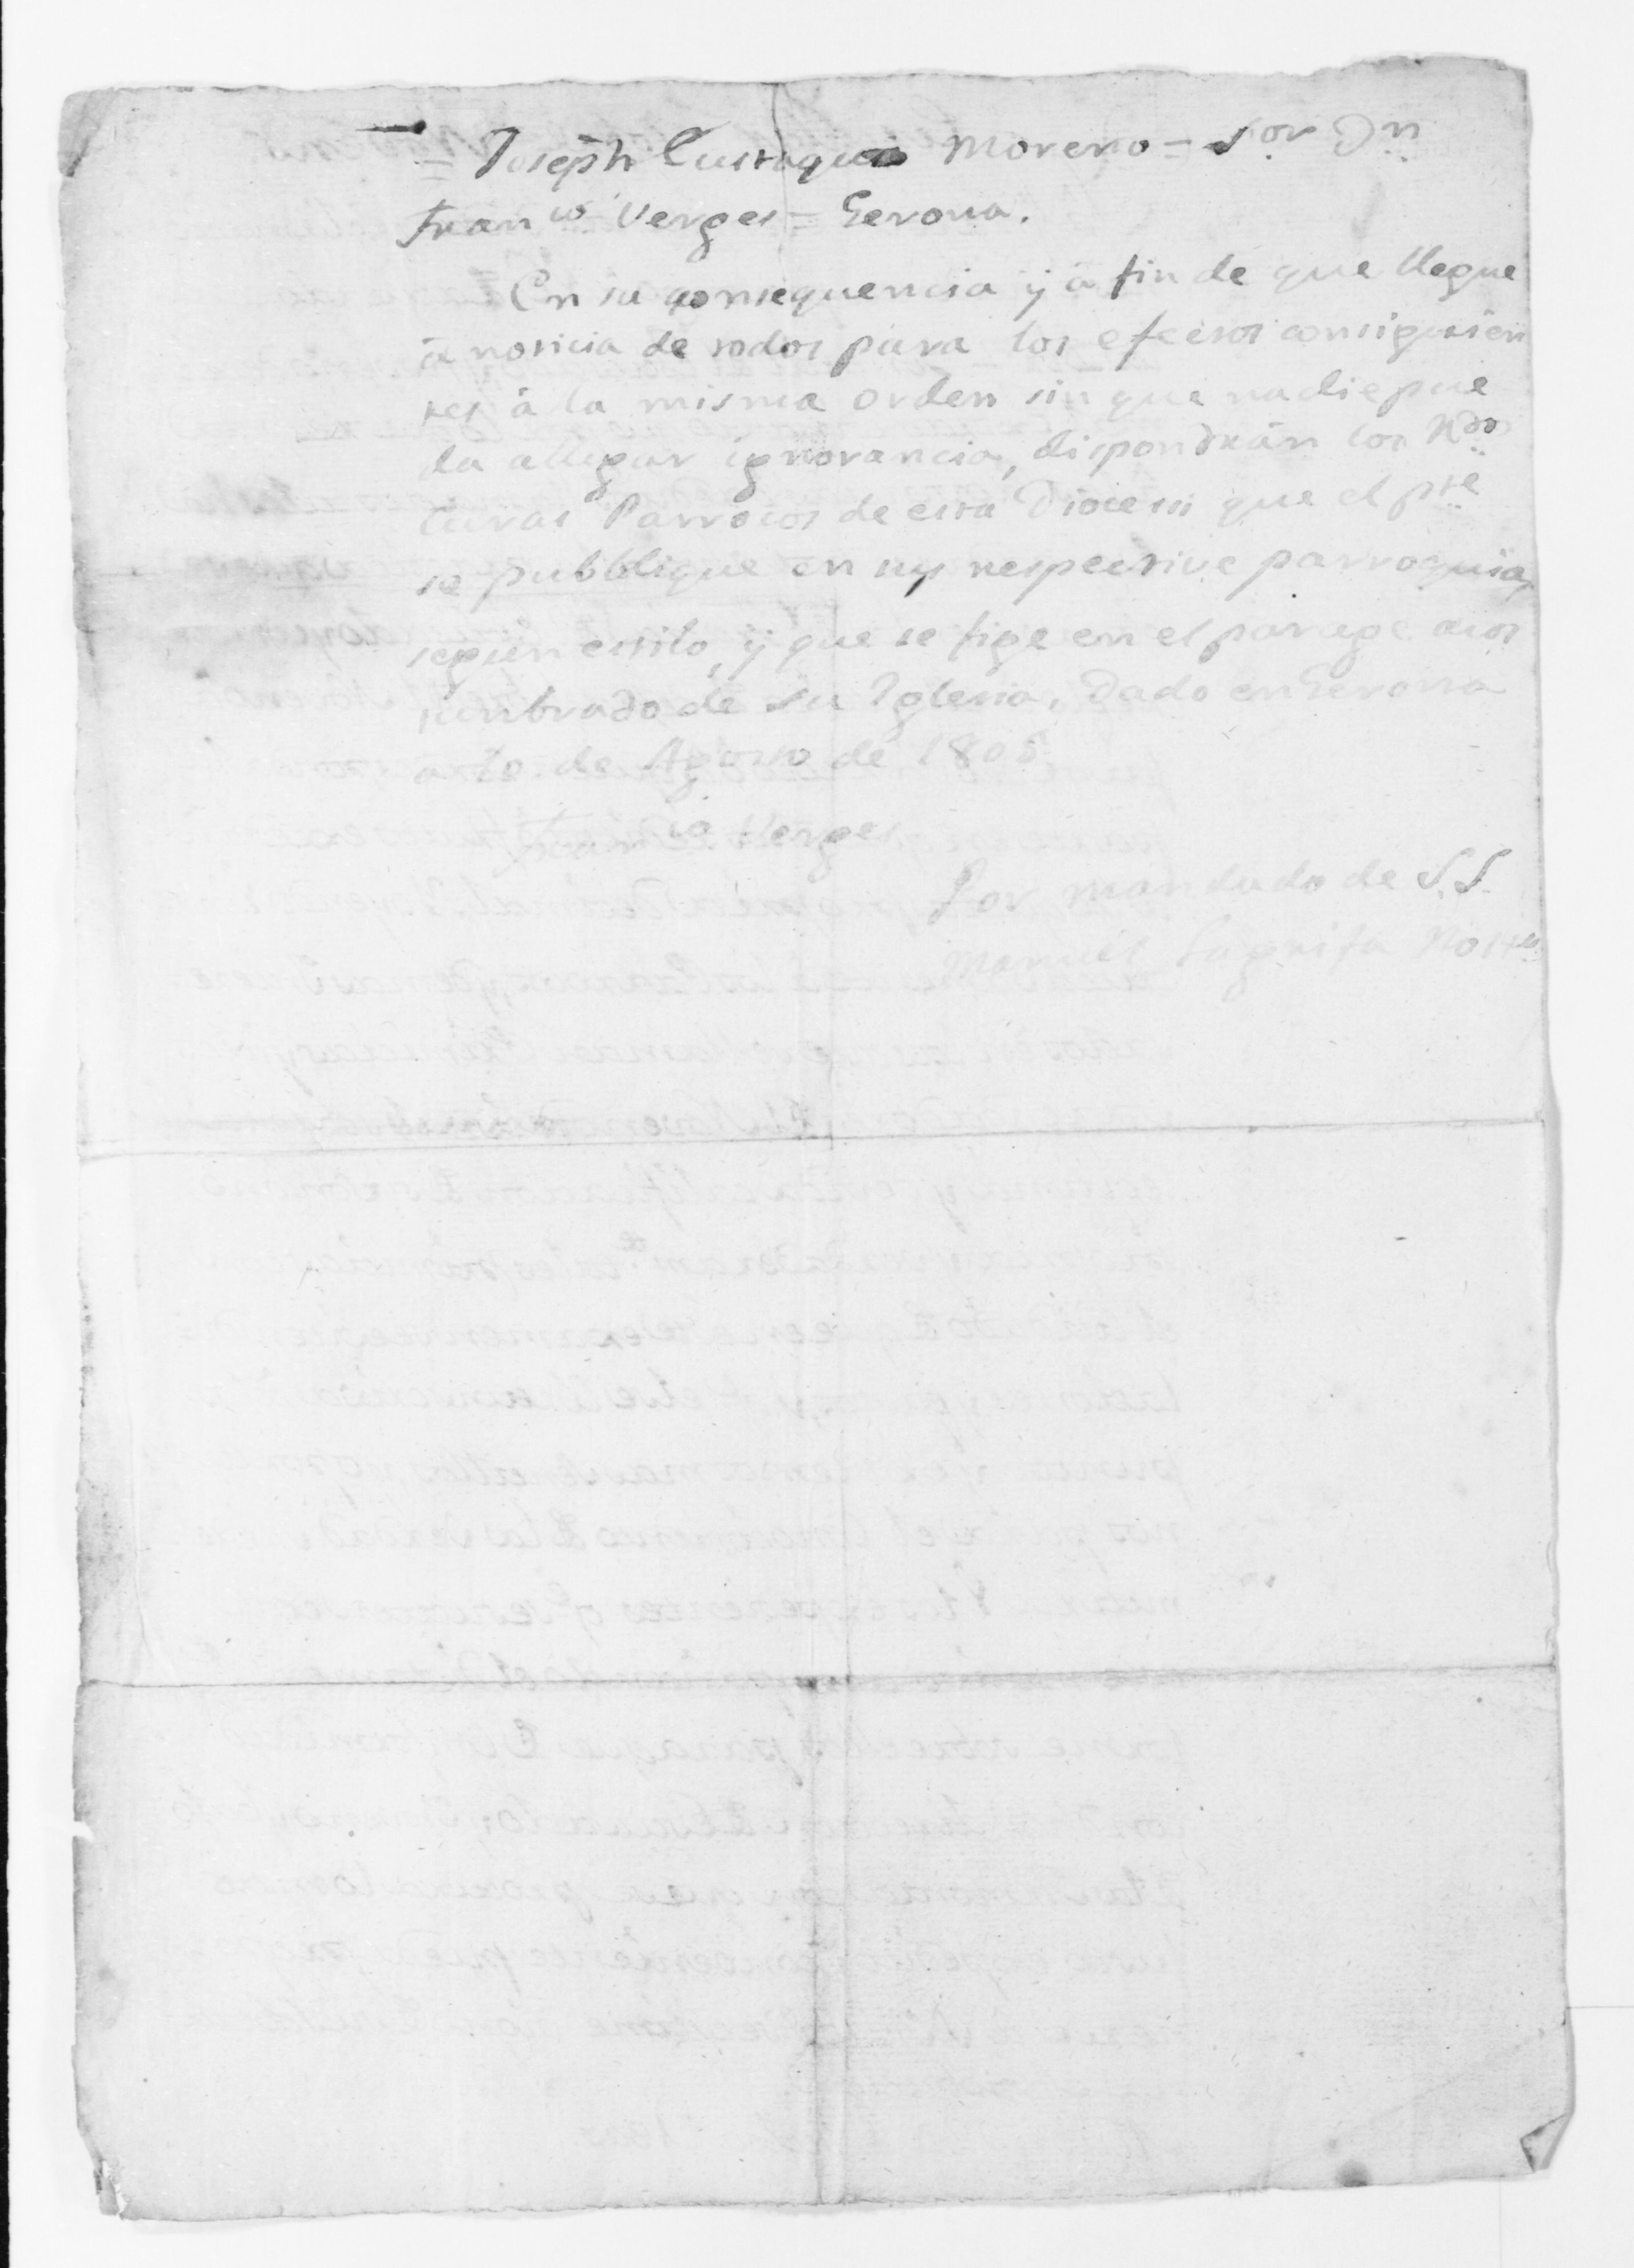 = Joseph Eustaquio Moreno = Sor Dn
Franco Verges = Gerona.
En su consequencia ÿ â fin de que llegue
â noticia de todos para los efectos consiguien
tes â la misma orden sin que nadie pue
da allegar ignorancia, dispondrán los Rdos
Curas Parrocos de esta Diocesis que el pnte
se pubblique en sus respective parroquias,
segun estilo, ÿ que se fige en el parage acos
tumbrado de su Iglesia. Dado en Gerona
a de Agosto de 1805
Franco Verges
Por mandado de S.S.
Manuel Nott